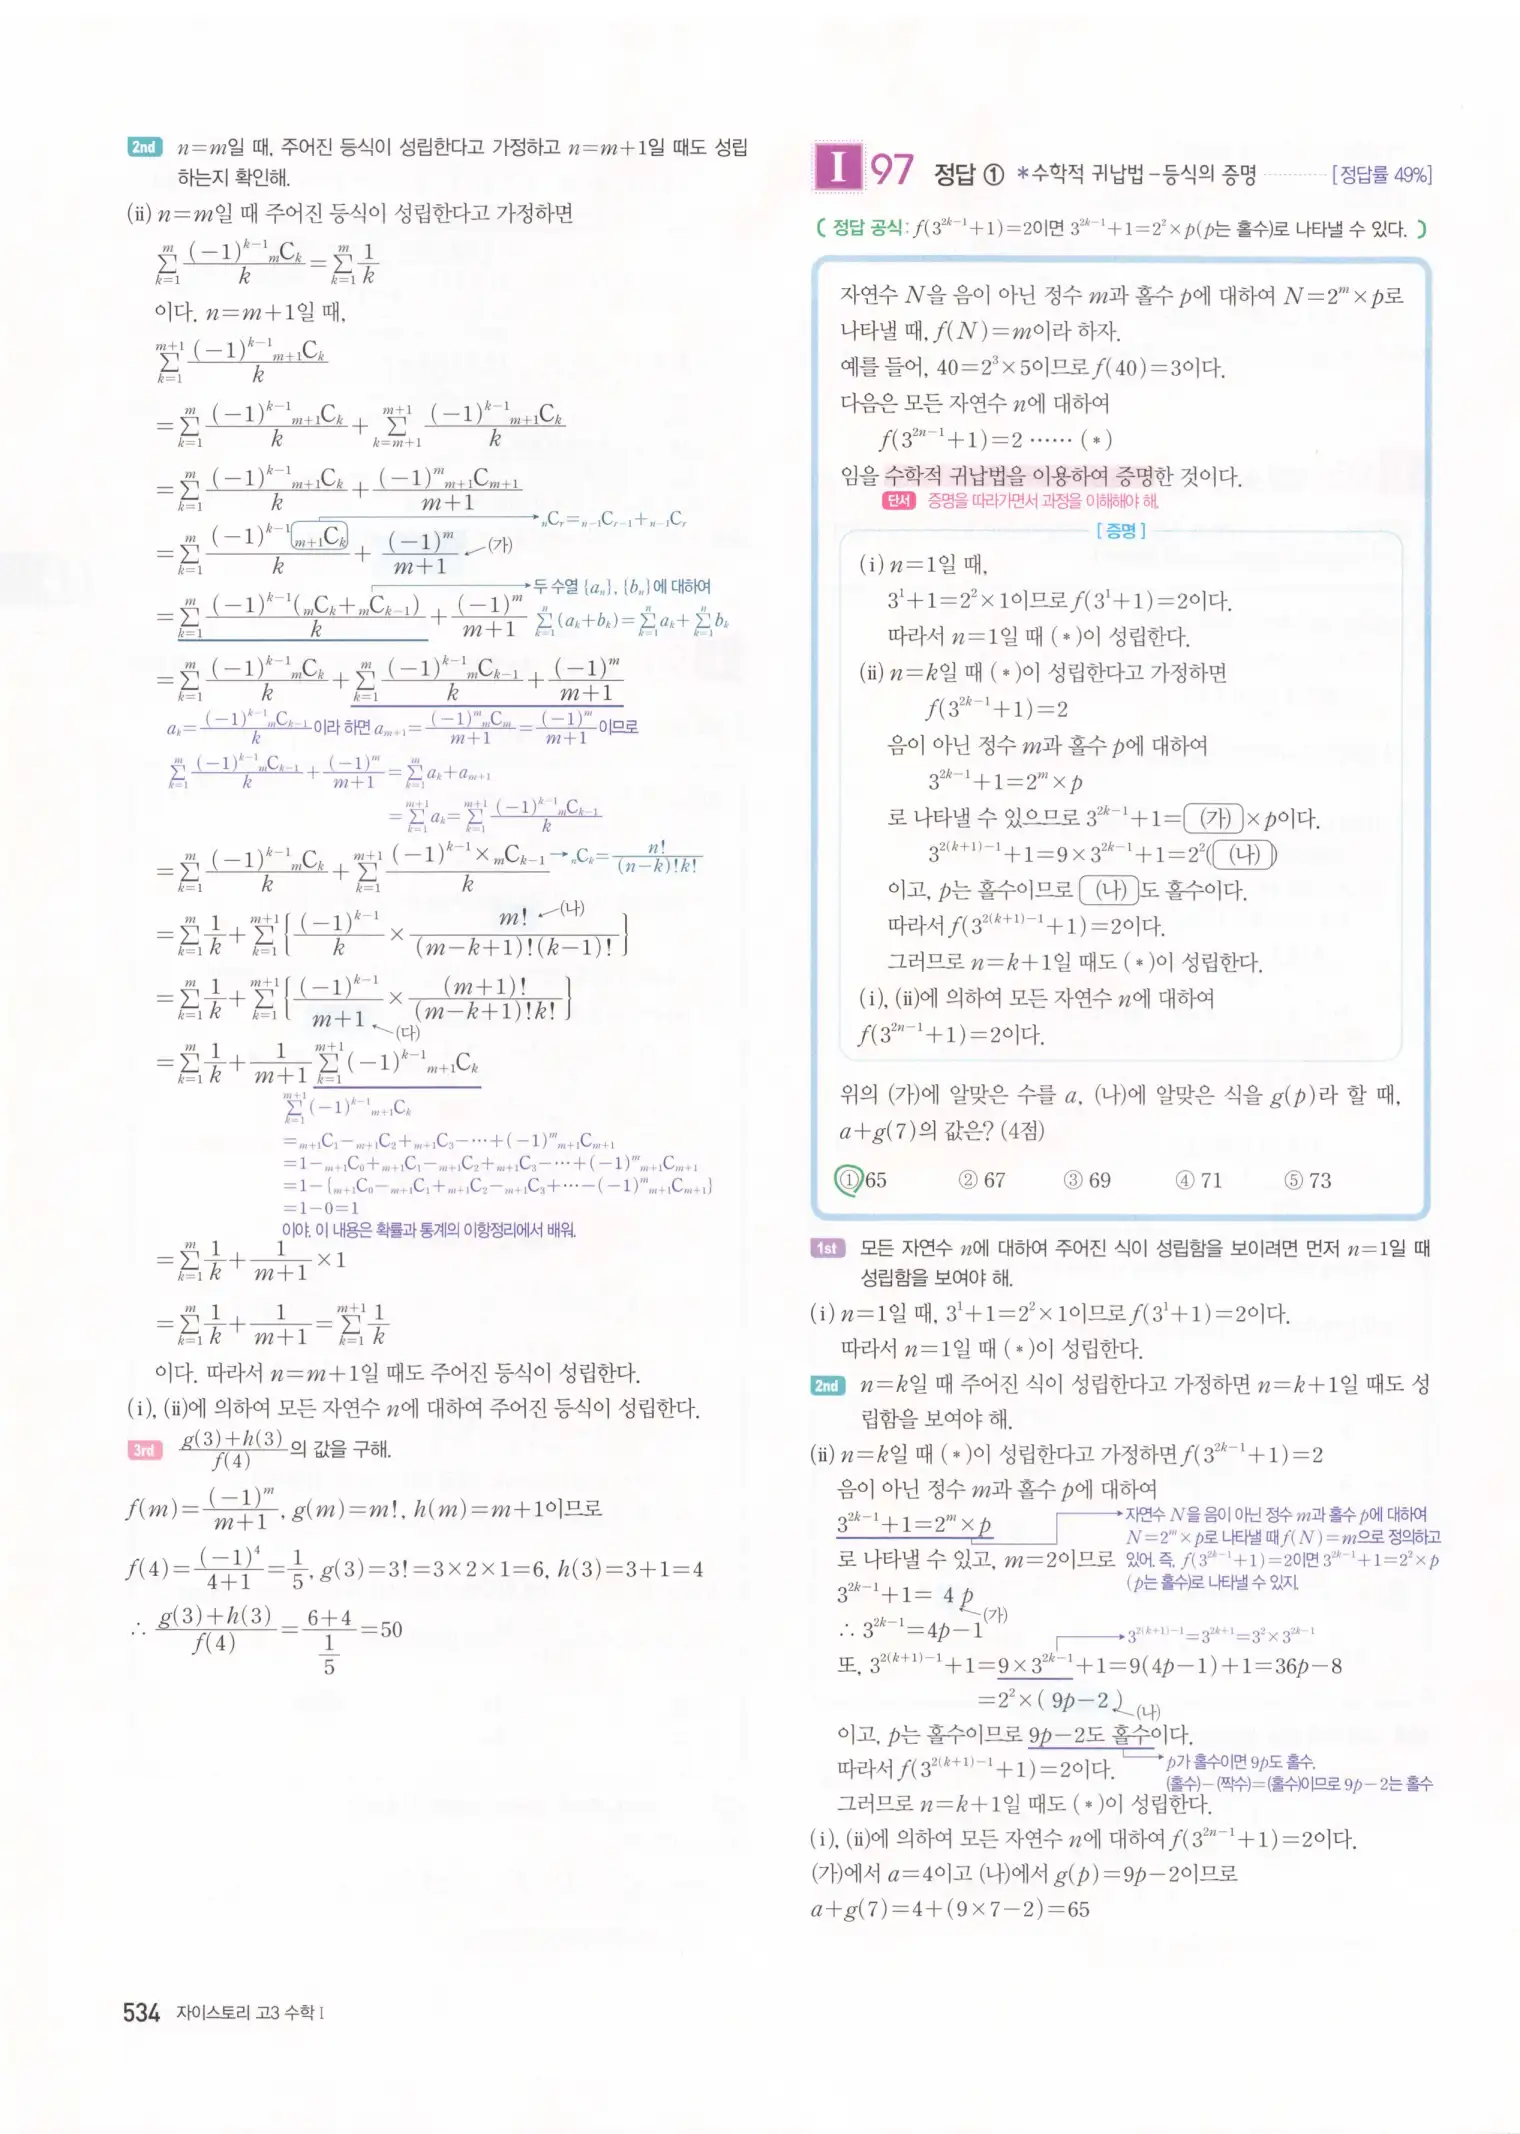 2nd n=m일 때, 주어진 등식이 성립한다고 가정하고 n=m+1일 때도 성립
하는지 확인해.
(ii) n=m일 때 주어진 등식이 성립한다고 가정하면
\sum_{k=1}^{m} \frac{(-1)^{k-1}{}_mC_k}{k} = \sum_{k=1}^{m} \frac{1}{k}
이다. n=m+1일 때,
\sum_{k=1}^{m+1} \frac{(-1)^{k-1}{}_{m+1}C_k}{k}
= \sum_{k=1}^{m} \frac{(-1)^{k-1}{}_{m+1}C_k}{k} + \sum_{k=m+1}^{m+1} \frac{(-1)^{k-1}{}_{m+1}C_k}{k}
= \sum_{k=1}^{m} \frac{(-1)^{k-1}{}_{m+1}C_k}{k} + \frac{(-1)^m{}_{m+1}C_{m+1}}{m+1}
→ {}_nC_r = {}_{n-1}C_{r-1} + {}_{n-1}C_r
= \sum_{k=1}^{m} \frac{(-1)^{k-1}{}_{m+1}C_k}{k} + \frac{(-1)^m}{m+1} ←(가)
→ 두 수열 {a_n}, {b_n}에 대하여
= \sum_{k=1}^{m} \frac{(-1)^{k-1}({}_mC_k+{}_mC_{k-1})}{k} + \frac{(-1)^m}{m+1} \sum_{k=1}^{n}(a_k+b_k) = \sum_{k=1}^{n}a_k + \sum_{k=1}^{n}b_k
= \sum_{k=1}^{m} \frac{(-1)^{k-1}{}_mC_k}{k} + \sum_{k=1}^{m} \frac{(-1)^{k-1}{}_mC_{k-1}}{k} + \frac{(-1)^m}{m+1}
a_k = \frac{(-1)^{k-1}{}_mC_{k-1}}{k}이라 하면 a_{m+1} = \frac{(-1)^m{}_mC_m}{m+1} = \frac{(-1)^m}{m+1}이므로
\sum_{k=1}^{m} \frac{(-1)^{k-1}{}_mC_{k-1}}{k} + \frac{(-1)^m}{m+1} = \sum_{k=1}^{m}a_k + a_{m+1}
= \sum_{k=1}^{m+1}a_k = \sum_{k=1}^{m+1} \frac{(-1)^{k-1}{}_mC_{k-1}}{k}
= \sum_{k=1}^{m} \frac{(-1)^{k-1}{}_mC_k}{k} + \sum_{k=1}^{m+1} \frac{(-1)^{k-1}×{}_mC_{k-1}}{k} → {}_nC_k = \frac{n!}{(n-k)!k!}
= \sum_{k=1}^{m} \frac{1}{k} + \sum_{k=1}^{m+1} { \frac{(-1)^{k-1}}{k} × \frac{m!}{(m-k+1)!(k-1)!} } ←(나)
= \sum_{k=1}^{m} \frac{1}{k} + \sum_{k=1}^{m+1} { \frac{(-1)^{k-1}}{m+1} × \frac{(m+1)!}{(m-k+1)!k!} } ←(다)
= \sum_{k=1}^{m} \frac{1}{k} + \frac{1}{m+1} \sum_{k=1}^{m+1} (-1)^{k-1}{}_{m+1}C_k
\sum_{k=1}^{m+1} (-1)^{k-1}{}_{m+1}C_k
= {}_{m+1}C_1 - {}_{m+1}C_2 + {}_{m+1}C_3 - ⋯ + (-1)^m{}_{m+1}C_{m+1}
= 1 - {}_{m+1}C_0 + {}_{m+1}C_1 - {}_{m+1}C_2 + {}_{m+1}C_3 - ⋯ + (-1)^m{}_{m+1}C_{m+1}
= 1 - {{}_{m+1}C_0 - {}_{m+1}C_1 + {}_{m+1}C_2 - {}_{m+1}C_3 + ⋯ - (-1)^m{}_{m+1}C_{m+1}}
=1-0=1
이야. 이 내용은 확률과 통계의 이항정리에서 배워.
= \sum_{k=1}^{m} \frac{1}{k} + \frac{1}{m+1} × 1
= \sum_{k=1}^{m} \frac{1}{k} + \frac{1}{m+1} = \sum_{k=1}^{m+1} \frac{1}{k}
이다. 따라서 n=m+1일 때도 주어진 등식이 성립한다.
(i), (ii)에 의하여 모든 자연수 n에 대하여 주어진 등식이 성립한다.
3rd \frac{g(3)+h(3)}{f(4)}의 값을 구해.
f(m) = \frac{(-1)^m}{m+1}, g(m)=m!, h(m)=m+1이므로
f(4) = \frac{(-1)^4}{4+1} = \frac{1}{5}, g(3)=3!=3×2×1=6, h(3)=3+1=4
∴ \frac{g(3)+h(3)}{f(4)} = \frac{6+4}{\frac{1}{5}} = 50
534 자이스토리 고3 수학 I
I 97 정답 ① *수학적 귀납법-등식의 증명 [정답률 49%]
( 정답 공식: f(3^{2k-1}+1)=2이면 3^{2k-1}+1=2^2×p(p는 홀수)로 나타낼 수 있다. )
자연수 N을 음이 아닌 정수 m과 홀수 p에 대하여 N=2^m×p로
나타낼 때, f(N)=m이라 하자.
예를 들어, 40=2^3×5이므로 f(40)=3이다.
다음은 모든 자연수 n에 대하여
f(3^{2n-1}+1)=2 ⋯⋯ (*)
임을 수학적 귀납법을 이용하여 증명한 것이다.
단서 증명을 따라가면서 과정을 이해해야 해.
[증명]
(i) n=1일 때,
3^1+1=2^2×1이므로 f(3^1+1)=2이다.
따라서 n=1일 때 (*)이 성립한다.
(ii) n=k일 때 (*)이 성립한다고 가정하면
f(3^{2k-1}+1)=2
음이 아닌 정수 m과 홀수 p에 대하여
3^{2k-1}+1=2^m×p
로 나타낼 수 있으므로 3^{2k-1}+1= (가) ×p이다.
3^{2(k+1)-1}+1=9×3^{2k-1}+1=2^2( (나) )
이고, p는 홀수이므로 (나) 도 홀수이다.
따라서 f(3^{2(k+1)-1}+1)=2이다.
그러므로 n=k+1일 때도 (*)이 성립한다.
(i), (ii)에 의하여 모든 자연수 n에 대하여
f(3^{2n-1}+1)=2이다.
위의 (가)에 알맞은 수를 a, (나)에 알맞은 식을 g(p)라 할 때,
a+g(7)의 값은? (4점)
① 65 ② 67 ③ 69 ④ 71 ⑤ 73
1st 모든 자연수 n에 대하여 주어진 식이 성립함을 보이려면 먼저 n=1일 때
성립함을 보여야 해.
(i) n=1일 때, 3^1+1=2^2×1이므로 f(3^1+1)=2이다.
따라서 n=1일 때 (*)이 성립한다.
2nd n=k일 때 주어진 식이 성립한다고 가정하면 n=k+1일 때도 성
립함을 보여야 해.
(ii) n=k일 때 (*)이 성립한다고 가정하면 f(3^{2k-1}+1)=2
음이 아닌 정수 m과 홀수 p에 대하여
3^{2k-1}+1=2^m×p
→ 자연수 N을 음이 아닌 정수 m과 홀수 p에 대하여
N=2^m×p로 나타낼 때 f(N)=m으로 정의하고
있어. 즉, f(3^{2k-1}+1)=2이면 3^{2k-1}+1=2^2×p
(p는 홀수)로 나타낼 수 있지.
로 나타낼 수 있고, m=2이므로
3^{2k-1}+1= 4 p
(가)
∴ 3^{2k-1}=4p-1
→ 3^{2(k+1)-1}=3^{2k+1}=3^2×3^{2k-1}
또, 3^{2(k+1)-1}+1=9×3^{2k-1}+1=9(4p-1)+1=36p-8
=2^2×( 9p-2 ) (나)
이고, p는 홀수이므로 9p-2도 홀수이다.
→ p가 홀수이면 9p도 홀수,
(홀수)-(짝수)=(홀수)이므로 9p-2는 홀수
따라서 f(3^{2(k+1)-1}+1)=2이다.
그러므로 n=k+1일 때도 (*)이 성립한다.
(i), (ii)에 의하여 모든 자연수 n에 대하여 f(3^{2n-1}+1)=2이다.
(가)에서 a=4이고 (나)에서 g(p)=9p-2이므로
a+g(7)=4+(9×7-2)=65